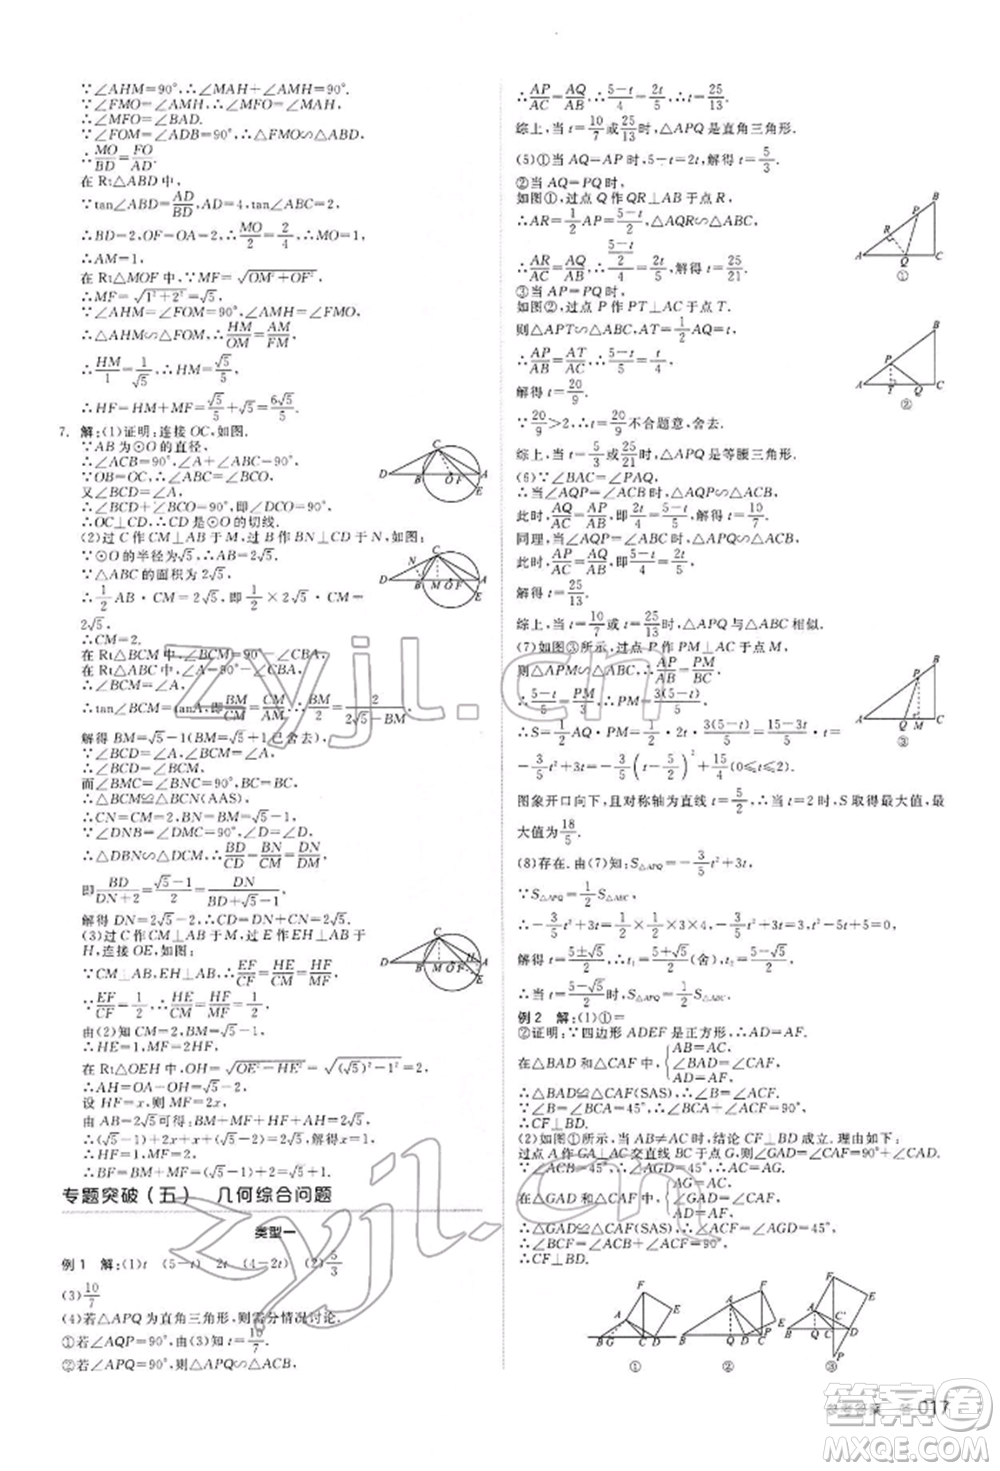 ∵∠AHM=90°,∴∠MAH+∠AMH=90°.
∵∠FMO=∠AMH,∠FMO+∠MFO=90°,
∴∠MFO=∠BAD.
∵∠FOM=∠ADB=90°,∴△FMO∽△ABD.
∴MO/BD=FO/DA.
在 Rt△ABD中,
∵tan∠ABD=AD/BD,AD=4,tan∠ABD=2,
∴BD=2,OF=OA=2,∴MO/2=2/4,∴MO=1,
∴AM=1.
在 Rt△MOF中,MF=√(OM²+OF²),
∴MF=√(1²+2²)=√5.
∵∠AHM=∠FOM=90°,∠AMH=∠FMO,
∴△AMH∽△FMO,∴HM/OM=AM/FM.
∴HM/1=1/√5,∴HM=√5/5,
∴HF=HM+MF=√5/5+√5=6√5/5.
7. 解:(1)证明:连接 OC,如图.
∵AB 为⊙O 的直径,
∴∠ACB=90°,∠A+∠ABC=90°.
∵OB=OC,∴∠ABC=∠BCO.
又∠BCD=∠A,
∴∠BCD+∠BCO=90°,即∠DCO=90°,
∴OC⊥CD,∴CD 是⊙O 的切线.
(2)过 C 作 CM⊥AB 于 M,过 B 作 BN⊥CD 于 N,如图:
∵⊙O 的半径为√5,∴AB=2√5.
∵△ABC 的面积为 2√5,
∴1/2 AB·CM=2√5,即 1/2×2√5·CM=
2√5,
∴CM=2.
在 Rt△BCM 中,∠BCM=90°-∠CBA,
在 Rt△ABC 中,∠A=90°-∠CBA,
∴∠BCM=∠A,
∴tan∠BCM=tanA,即 BM/CM=CM/AM,∴BM/2=2/(2√5-BM),
解得 BM=√5-1(BM=√5+1已舍去).
∵∠BCD=∠A,∠BCM=∠A,
∴∠BCD=∠BCM.
而∠BMC=∠BNC=90°,BC=BC,
∴△BCM≌△BCN(AAS),
∴CN=CM=2,BN=BM=√5-1.
∵∠DNB=∠DMC=90°,∠D=∠D,
∴△DBN∽△DCM,∴BD/CD=BN/CM=DN/DM,
即BD/(DN+2)=(√5-1)/2=DN/(BD+√5-1),
解得 DN=2√5-2,∴CD=DN+CN=2√5.
(3)过 C 作 CM⊥AB 于 M,过 E 作 EH⊥AB 于
H,连接 OE,如图:
∵CM⊥AB,EH⊥AB,∴EF/CF=HE/CM=HF/MF.
∵EF/CF=1/2,∴HE/CM=HF/MF=1/2.
由(2)知 CM=2,BM=√5-1,
∴HE=1,MF=2HF.
在 Rt△OEH 中,OH=√(OE²-HE²)=√((√5)²-1²)=2,
∴AH=OA-OH=√5-2,
设 HF=x,则 MF=2x,
由 AB=2√5可得:BM+MF+HF+AH=2√5,
∴(√5-1)+2x+x+(√5-2)=2√5,解得 x=1,
∴HF=1,MF=2,
∴BF=BM+MF=(√5-1)+2=√5+1.
专题突破(五) 几何综合问题
类型一
例 1 解:(1)t (5-t) 2t (4-2t) (2)5/3
(3)10/7
(4)若△APQ 为直角三角形,则需分情况讨论.
①若∠AQP=90°,由(3)知 t=10/7.
②若∠APQ=90°,则△APQ∽△ACB,
∴AP/AC=AQ/AB,∴(5-t)/4=2t/5,∴t=25/13.
综上,当 t=10/7或25/13时,△APQ 是直角三角形.
(5)①当 AQ=AP时,5-t=2t,解得 t=5/3.
②当 AP=PQ时,
如图①,过点 Q 作 QR⊥AB 于点 R,
∴AR=1/2 AP=(5-t)/2,△AQR∽△ABC,
∴AR/AC=AQ/AB,∴(5-t)/2/4=2t/5,解得 t=25/21.
③当 AP=PQ 时,
如图②,过点 P 作 PT⊥AC 于点 T,
则△APT∽△ABC,AT=1/2 AQ=t,
∴AP/AB=AT/AC,∴(5-t)/5=t/4,
解得 t=20/9.
∵20/9>2,∴t=20/9不合题意,舍去.
综上,当 t=5/3或25/21时,△APQ 是等腰三角形.
(6)∵∠BAC=∠PAQ,
∴当∠AQP=∠ACB=90°时,△APQ∽△ABC,
此时,AQ/AC=AP/AB,即2t/4=(5-t)/5,解得 t=10/7.
同理,当∠AQP=∠ABC时,△APQ∽△ACB,
此时,AP/AC=AQ/AB,即(5-t)/4=2t/5,
解得 t=25/13.
综上,当 t=10/7或25/13时,△APQ 与△ABC 相似.
(7)如图③所示,过点 P 作 PM⊥AC 于点 M,
则△APM∽△ABC,∴AP/AB=PM/BC,
∴(5-t)/5=PM/3,∴PM=3(5-t)/5,
∴S=1/2 AQ·PM=1/2·2t·3(5-t)/5=(15t-3t²)/5=
-3/5(t-5/2)²+15/4(0≤t≤2).
图象开口向下,且对称轴为直线 t=5/2,∴当 t=2 时,S 取得最大值,最
大值为18/5.
(8)存在.由(7)知:S△APQ=-3/5t²+3t,
∵S△APQ=1/2S△ABC,
∴-3/5t²+3t=1/2×1/2×3×4,∴t²-5t+5=0,
解得 t=(5±√5)/2,∴t₁=(5+√5)/2(舍),t₂=(5-√5)/2,
∴当 t=(5-√5)/2时,S△APQ=1/2S△ABC.
例 2 解:(1)①=
②证明:∵四边形 ADEF 是正方形,∴AD=AF.
在△BAD 和△CAF 中,{AB=AC,∠BAD=∠CAF,AD=AF,
∴△BAD≌△CAF(SAS),
∴∠B=∠ACF=45°,∴∠BCF=90°,
∴CF⊥BD.
(2)如图①所示,当 AB≠AC时,结论 CF⊥BD 成立.理由如下:
过点 A 作 GA⊥AC 交直线 BD 于点 G,
∵∠ACB=45°,∴∠AGD=45°,∴AC=AG.
在△GAD 和△CAF 中,{AC=AG,∠GAD=∠CAF,AD=AF,
∴△GAD≌△CAF(SAS),∴∠ACF=∠AGD=45°,
∴∠BCF=∠ACB+∠ACF=90°,
∴CF⊥BD.
① ② ③
参考答案 答 017
答案圈
MXQE.COM
zyjl.cn
zyjl.cn